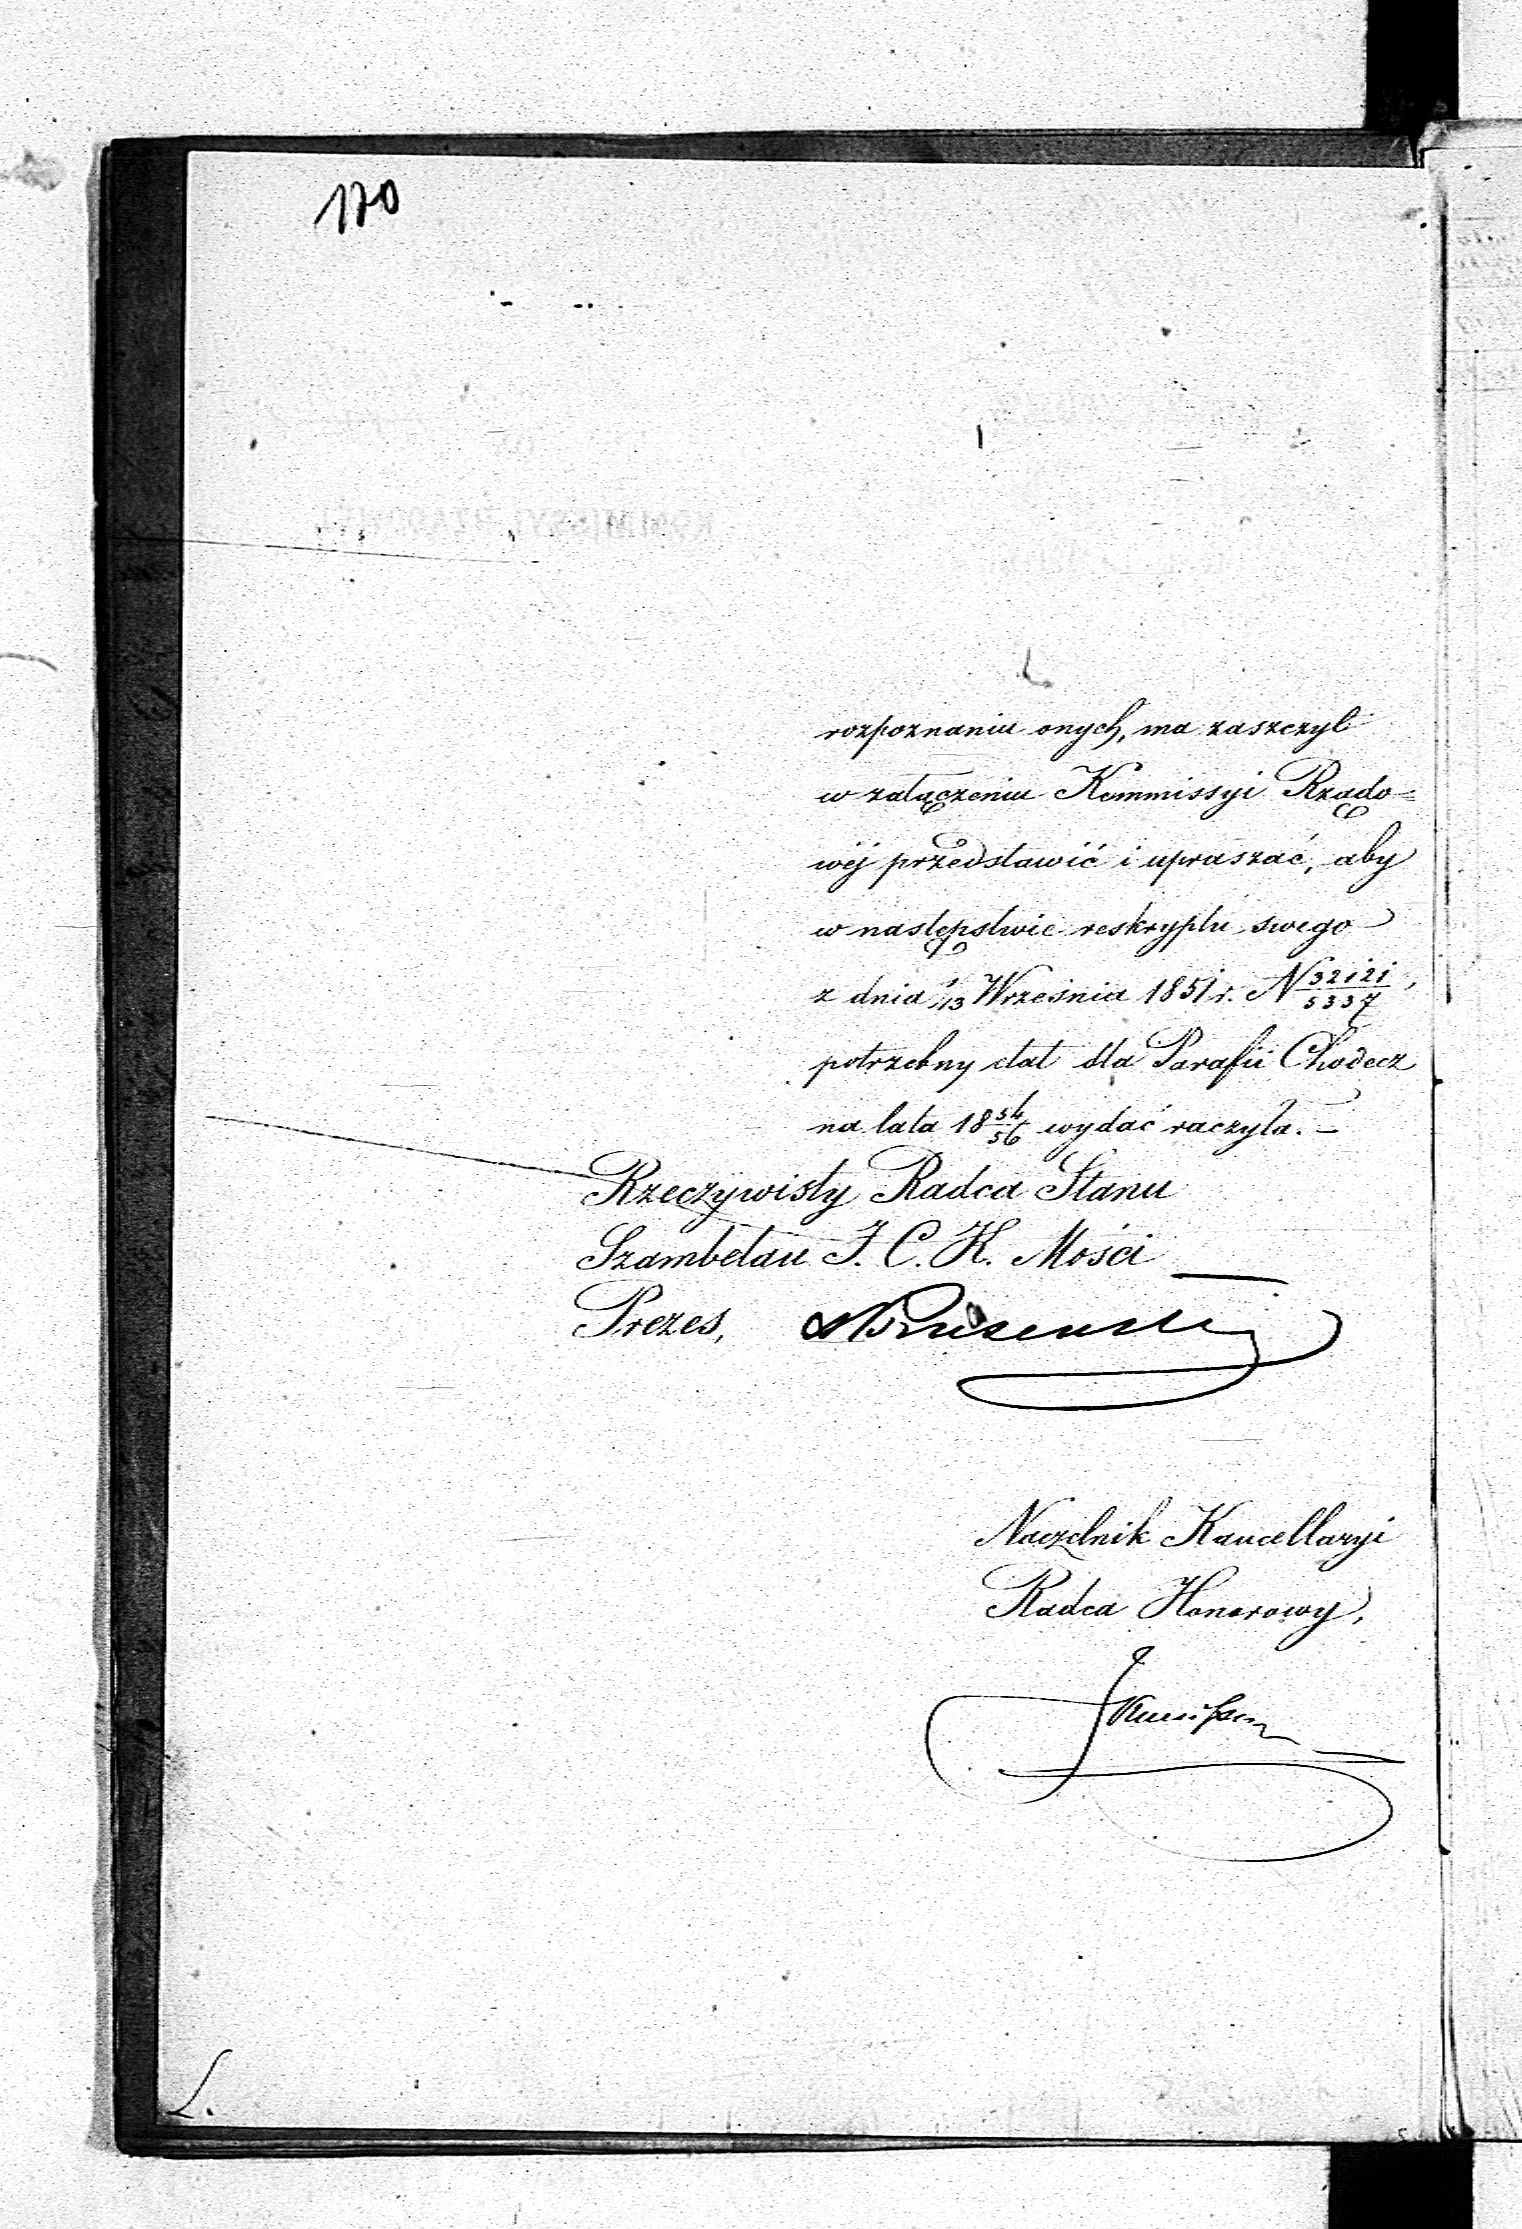 170
rozpoznaniu onych, ma zaszczyt
w załączeniu Kommissyi Rządo=
wéj przedstawić i upraszać, aby
w następstwie reskryptu swego
z dnia 1/13 Września 1851 r. N 32121/5337,
potrzebny etat dla Parafii Chodecz
na lata 18 54/56 wydać raczyła. –
Rzeczywisty Radca Stanu
Szambelan J. C. K. Mości
Prezes,
Naczelnik Kancellaryi
Radca Honorowy,
L.